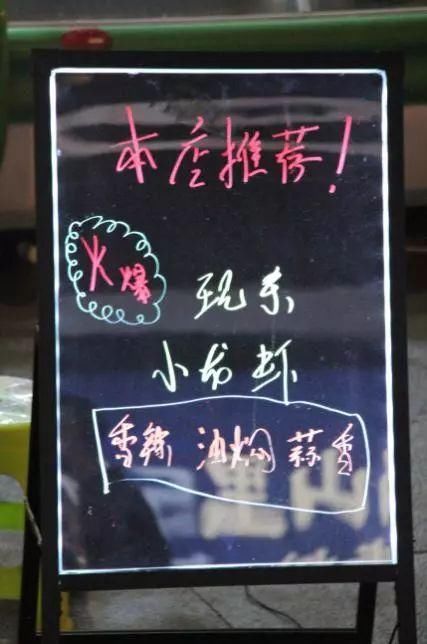 本店推荐!
火爆
现卖
小龙虾
香辣 油焖 蒜香